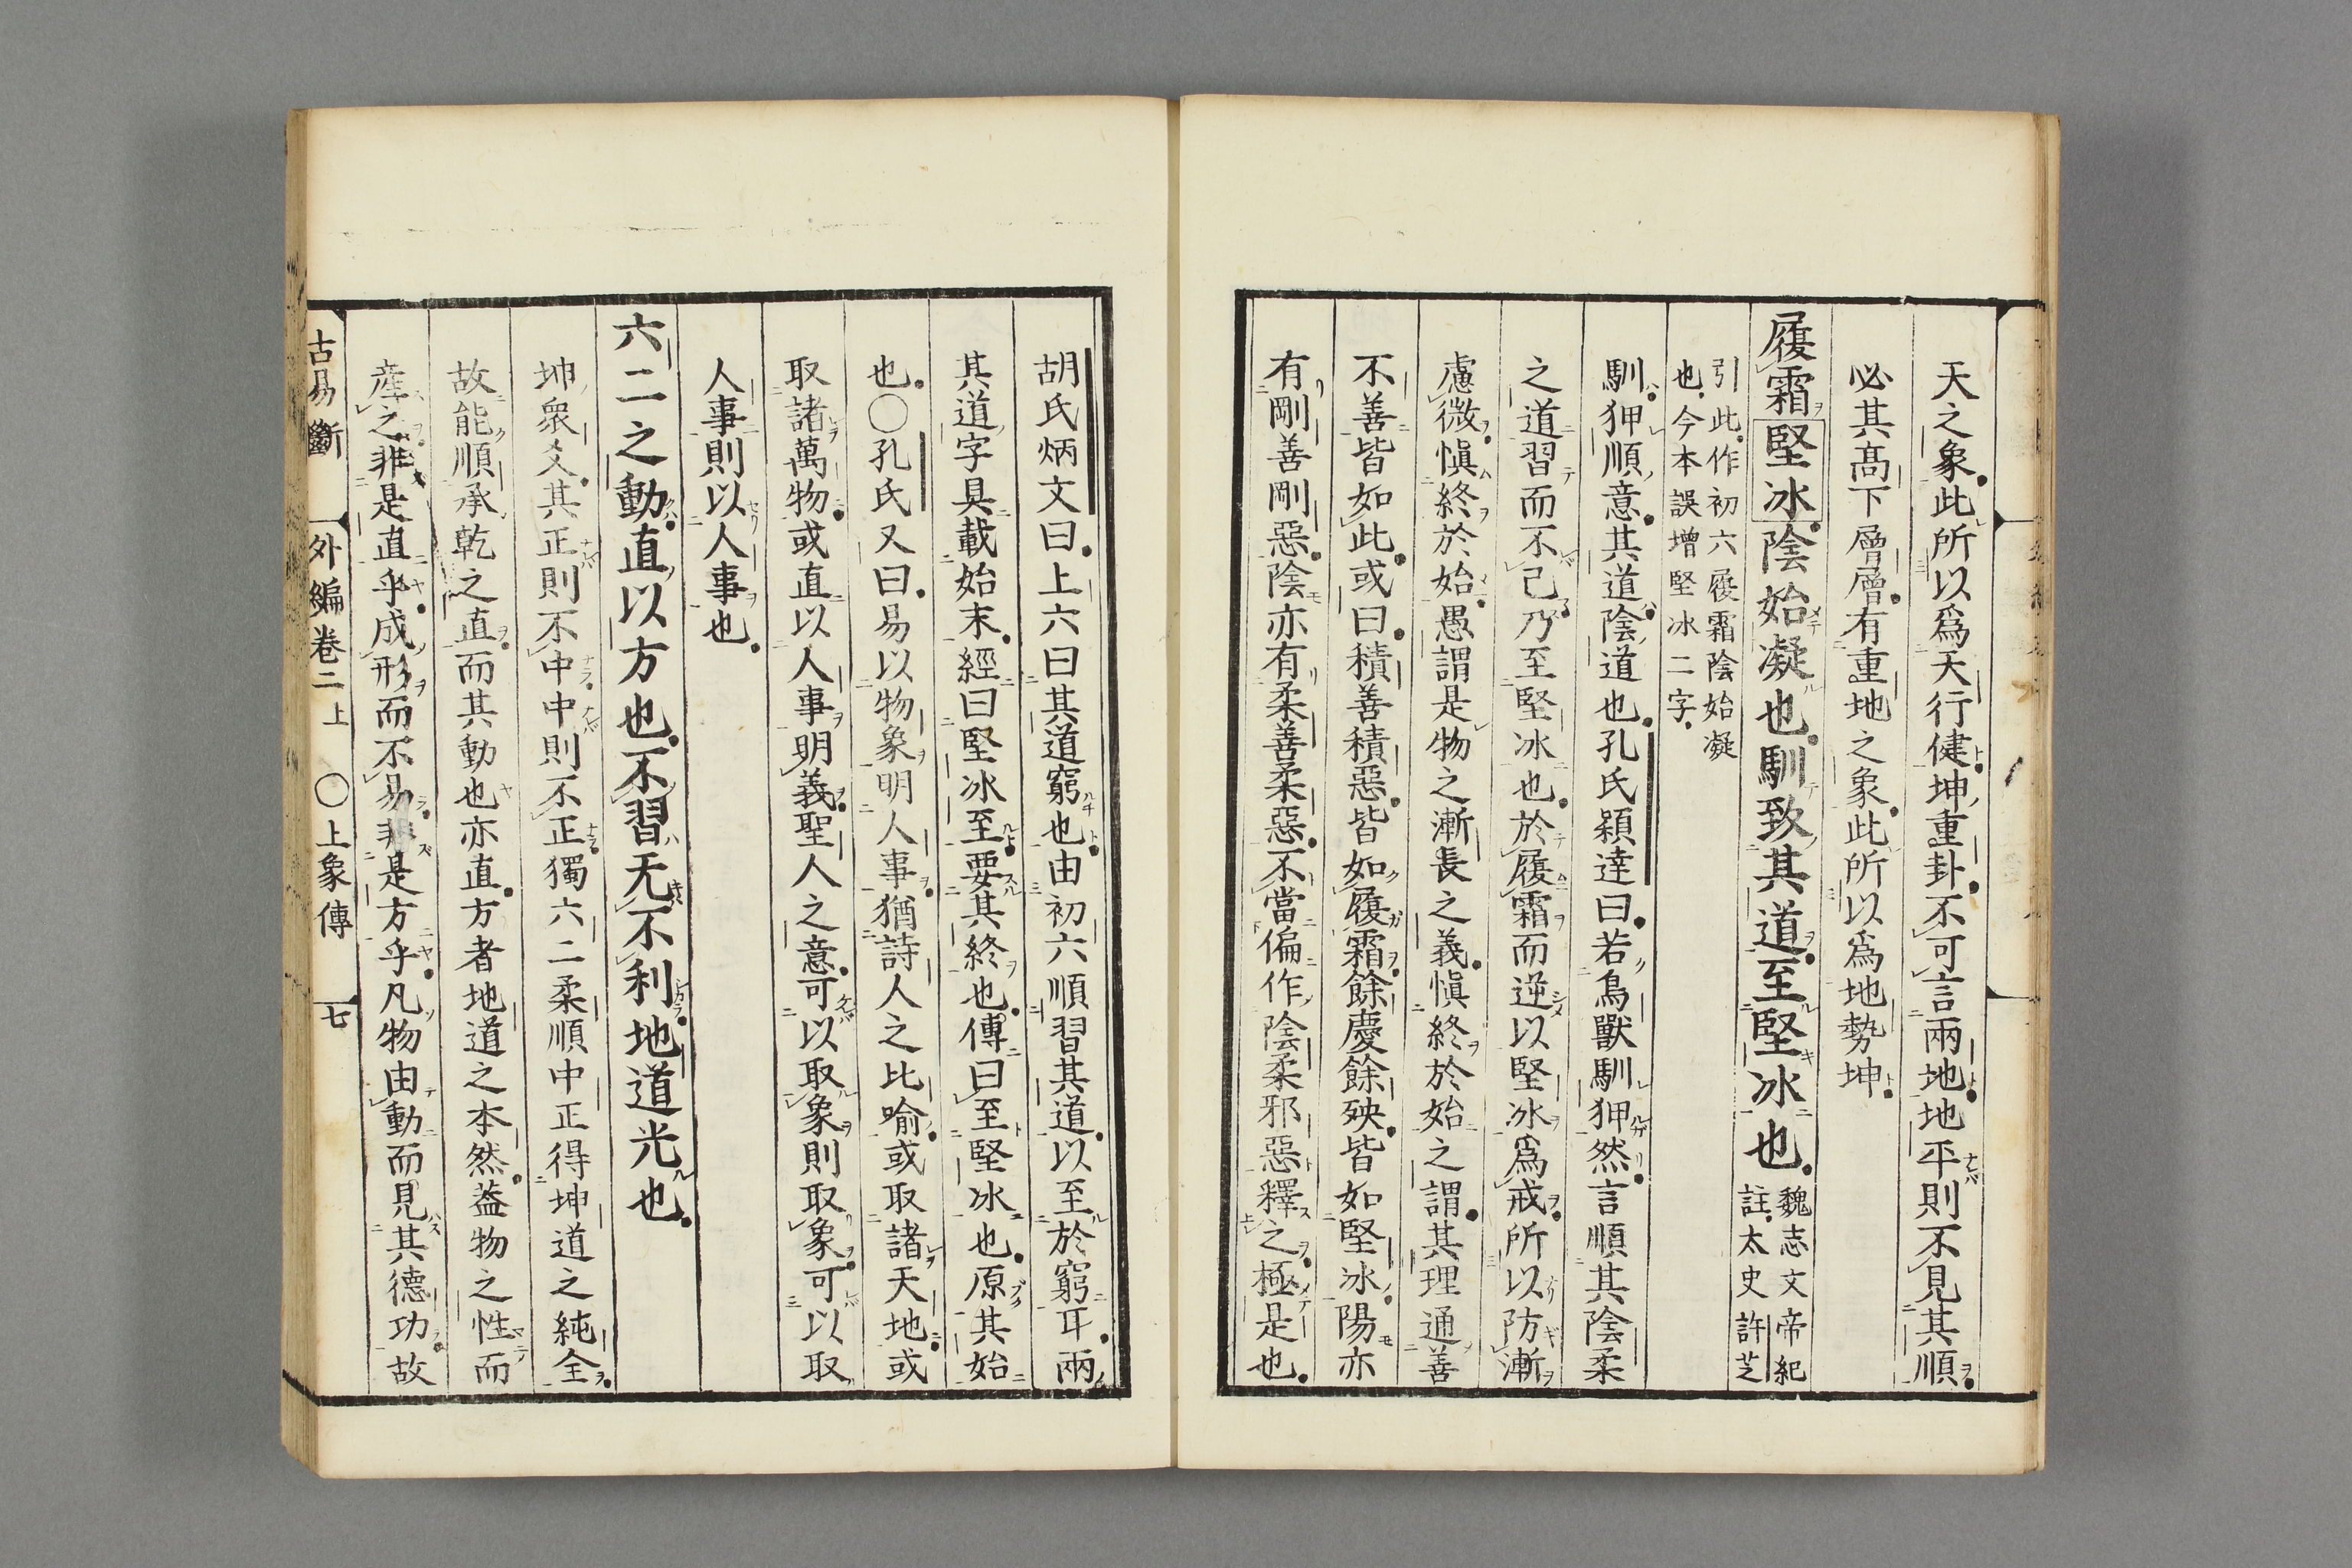 天之象此所以爲天行健坤重卦不可言兩地地平則不見其順
必其髙下層層有重地之象此所以爲地勢坤
履霜堅冰陰始凝也馴致其道至堅冰也魏志文帝紀
註太史許芝
引此作初六履霜陰始凝
也今本誤增堅冰二字
馴狎順意其道陰道也孔氏穎達曰若鳥獸馴狎然言順其陰柔
之道習而不已乃至堅冰也於履霜而逆以堅冰爲戒所以防漸
慮微愼終於始愚謂是物之漸長之義愼終於始之謂其理通善
不善皆如此或曰積善積惡皆如履霜餘慶餘殃皆如堅冰陽亦
有剛善剛惡陰亦有柔善柔惡不當偏作陰柔邪惡釋之極是也
胡氏炳文曰上六曰其道窮也由初六順習其道以至於窮耳兩
其道字具載始末經曰堅冰至要其終也傳曰至堅冰也原其始
也〇孔氏又曰易以物象明人事猶詩人之比喻或取諸天地或
取諸萬物或直以人事明義聖人之意可以取象則取象可以取
人事則以人事也
六二之動直以方也不習无不利地道光也
坤衆爻其正則不中中則不正獨六二柔順中正得坤道之純全
故能順承乾之直而其動也亦直方者地道之本然葢物之性而
産之非是直乎成形而不易非是方乎凡物由動而見其德功故
古易斷 外編卷二上 〇上象傳 七